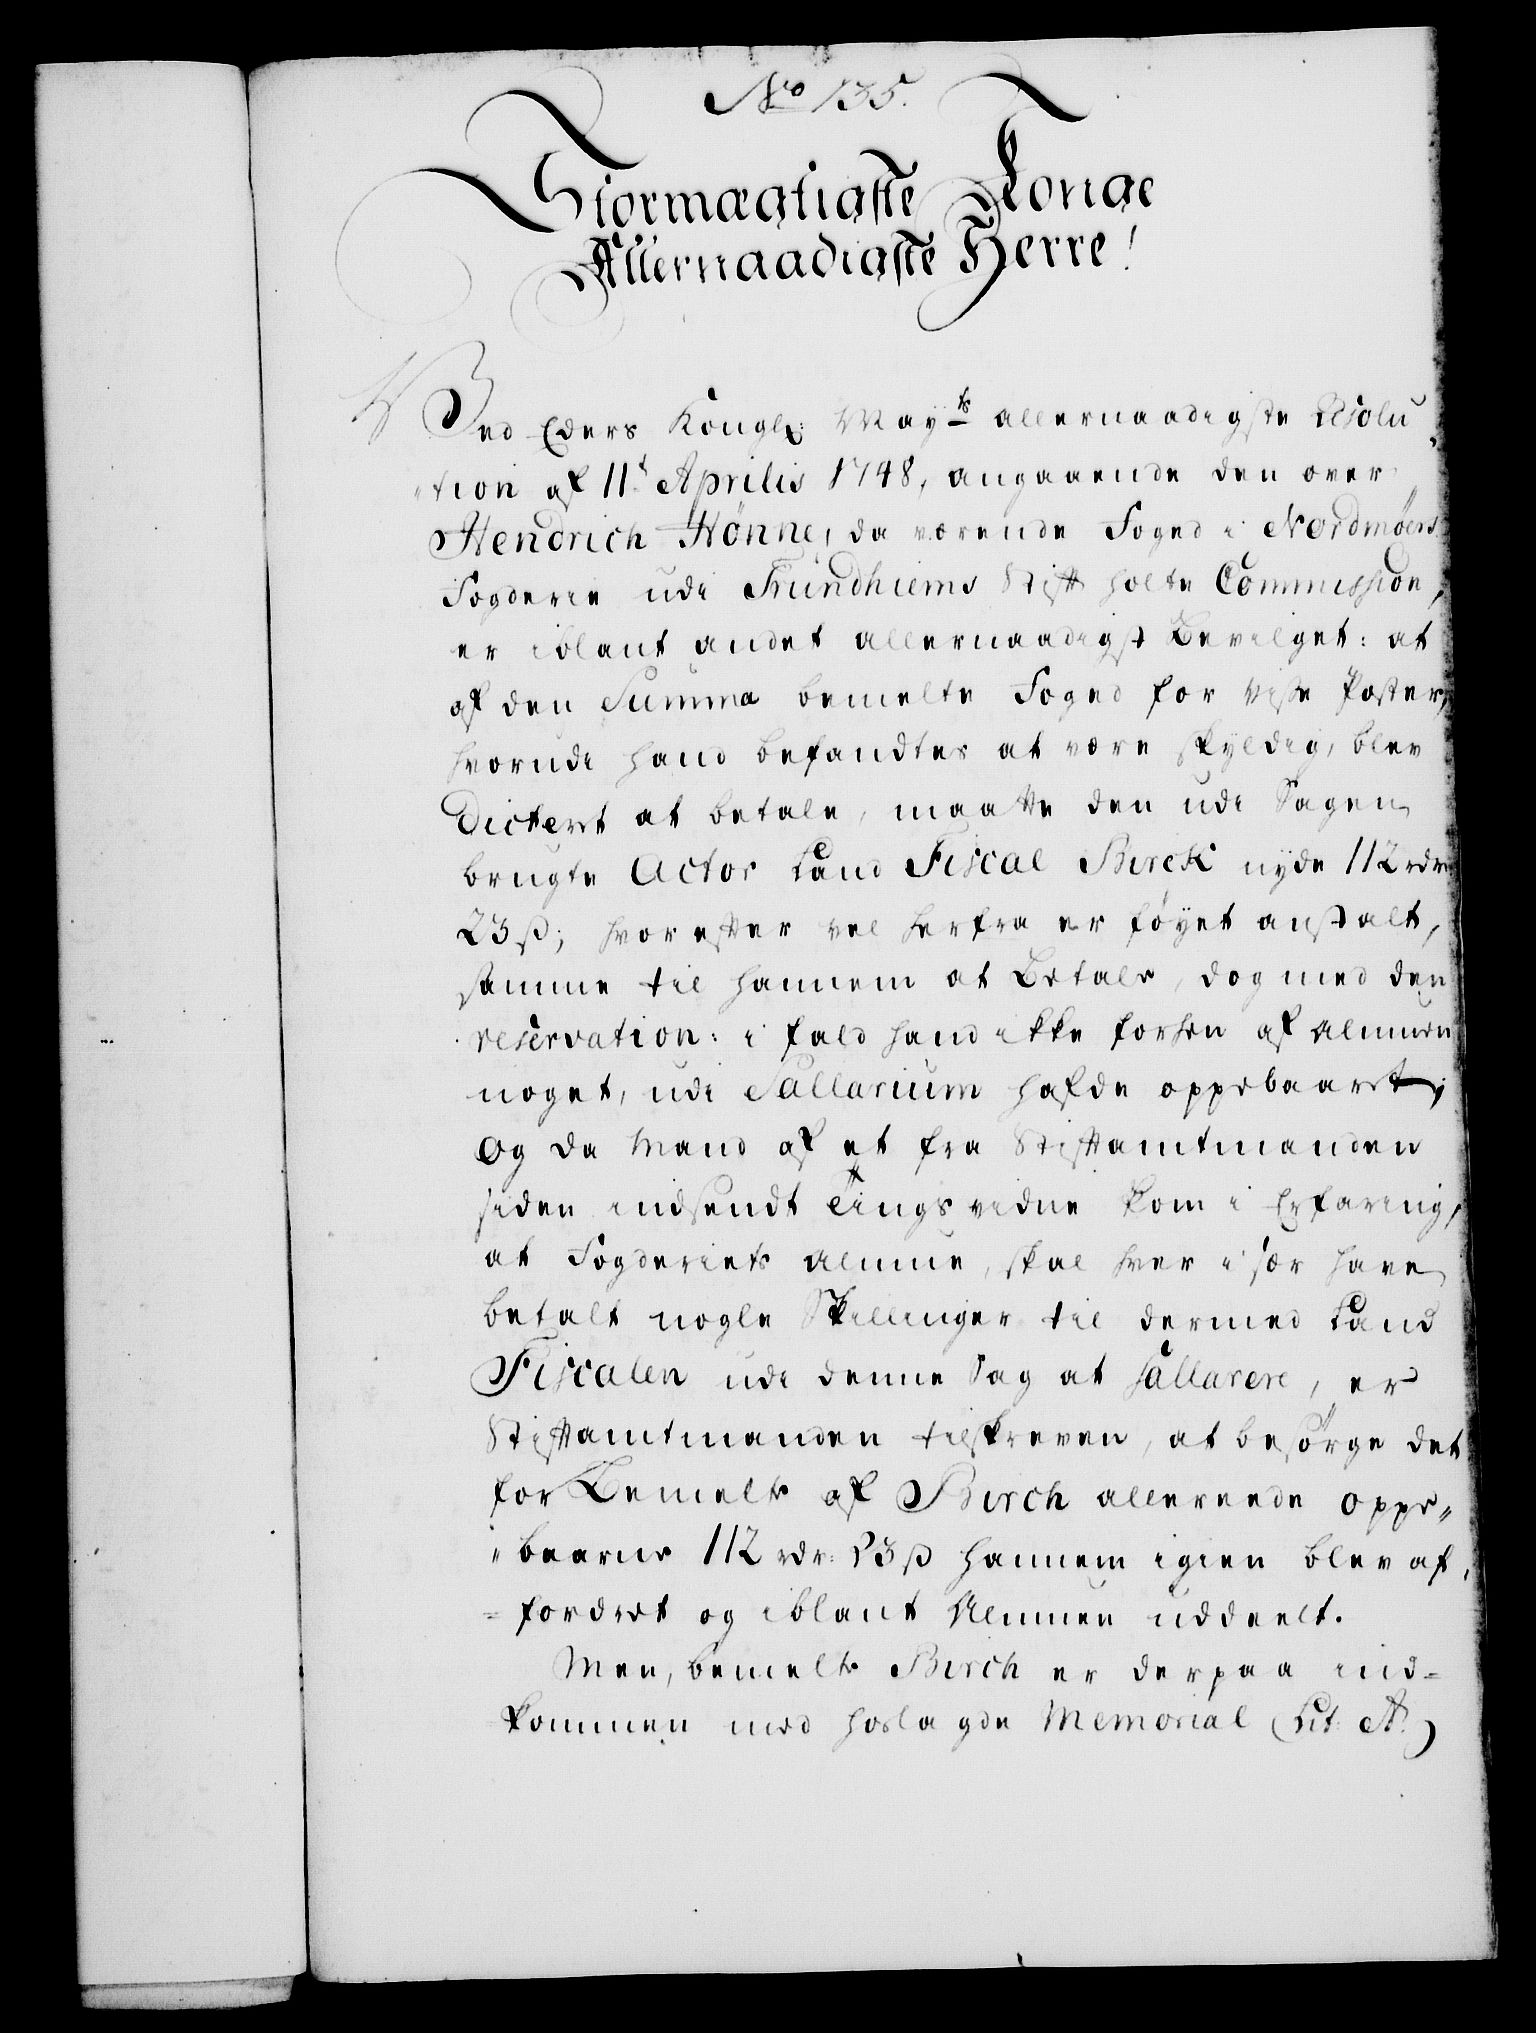 No 135.
Stormægtigste Konge
Allernaadigste Herre!
Ved Eders Kongl: Mayts allernaadigste Resolu
"tion af 11t Aprilis 1748, angaaende den over
Hendrich Hönne, da værende Foged i Nordmöers
Fogderie udi Trundhiems Stift holte Commission,
er iblant andet allernaadigst bevilget: at
af den Summa bemelte Foged for visse Poster,
hvorudi hand befandtes at være skyldig, blev
Dictert at betale, maatte den udi Sagen
brugte Actor Land Fiscal Birck nyde 112 rdr
23 ß; hvorefter vel herfra er föyet anstalt,
samme til hannem at Betale, dog med den
reservation: i fald hand ikke forhen af Almuen
noget, udi Sallarium hafde oppebaaret;
Og da Mand af et fra Stiftamtmanden
siden indsendt Tingsvidne kom i Erfaring,
at Fogderiets Almue, skal hver i sær have
betalt nogle Skillinger til dermed Land
Fiscalen udi denne Sag at Sallarere, er
Stiftamtmanden tilskreven, at besörge det
for Bemelte af Birch allereede oppe"
"baarne 112 rdr: 23 ß hannem igien blev af,
=fordret og iblant Almuen uddeelt.
Men, bemelte Birch er derpaa ind=
kommen med hoslagde Memorial (Lit: A.)